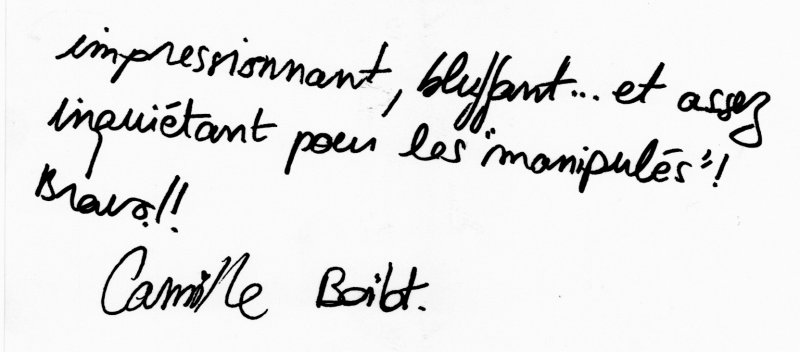 impressionnant, bluffant... et assez
inquiétant pour les "manipulés"!
Bravo!!
Camille Boibt.